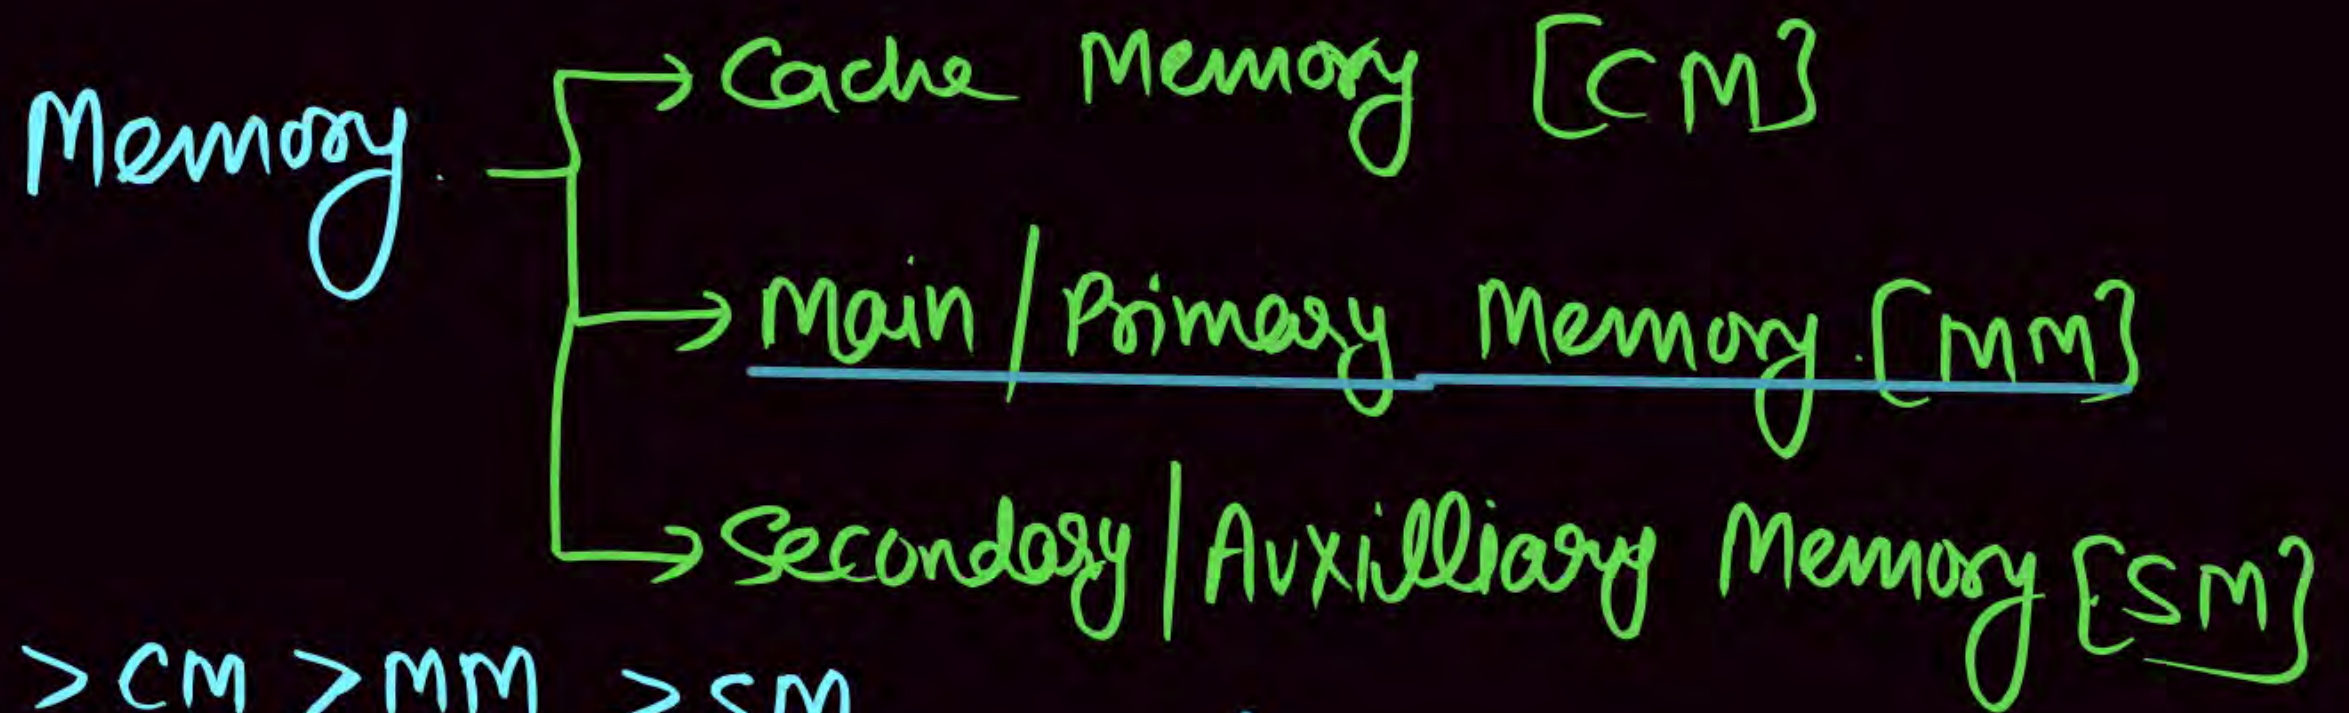 Memory
Cache Memory [CM]
Main/Primary Memory [MM]
Secondary/Auxilliary Memory [SM]
> CM > MM > SM